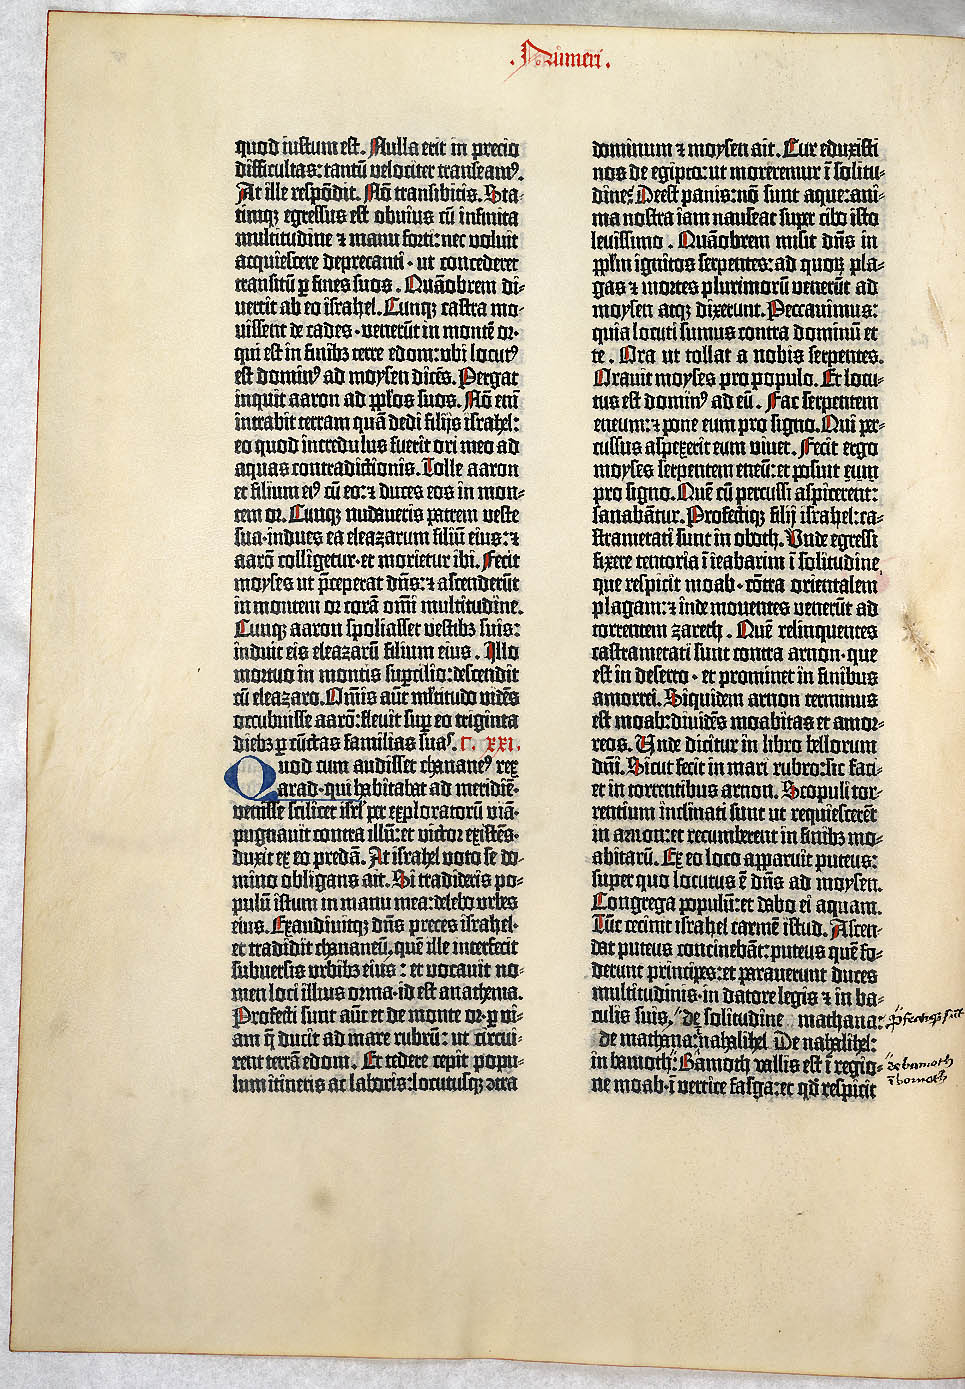 .Numeri.
quod iustum est. Nulla erit in precio
difficultas: tantū velociter transeamꝰ.
At ille respōdit. Nō transibitis. Sta-
timqꝫ egressus est obuius cū infinita
multitudine ⁊ manu forti: nec voluit
acquiescere deprecanti · ut concederet
transitū ꝑ fines suos. Quāobrem di-
uertit ab eo israhel. Cunqꝫ castra mo-
uissent de cades · venerūt in montē or ·
qui est in finibꝫ terre edom: vbi locutꝰ
est dominꝰ ad moysen dicēs. Pergat
inquit aaron ad ppl̄os suos. Nō eni
intrabit terram quā dedi filijs israhel:
eo quod incredulus fuerit ori meo ad
aquas contradictionis. Tolle aaron
et filium eiꝰ cū eo: ⁊ duces eos in mon-
tem or. Cunqꝫ nudaueris patrem veste
sua · indues ea eleazarum filiū eius: ⁊
aarō colligetur · et morietur ibi. Fecit
moyses ut p̄ceperat dn̄s: ⁊ ascenderūt
in montem or corā omī multitudine.
Cunqꝫ aaron spoliasset vestibꝫ suis:
induit eis eleazarū filium eius. Illo
mortuo in montis suꝑcilio: descendit
cū eleazaro. Om̄is aūt ml̄titudo vidēs
occubuisse aarō: fleuit suꝑ eo triginta
diebꝫ ꝑ cūctas familias suas. C. XXI.
Quod cum audisset chananeꝰ rex
arad · qui habitabat ad meridiē ·
venisse scilicet isrl̄ per exploratorū viā ·
pugnauit contra illū: et victor existēs ·
duxit ex eo predā. At israhel voto se do-
mino obligans ait. Si tradideris po-
pulū istum in manu mea: delebo vrbes
eius. Exaudiuitqꝫ dn̄s preces israhel ·
et tradidit chananeū, quē ille interfecit
subuersis vrbibꝫ eius: et vocauit no-
men loci illius orma · id est anathema.
Profecti sunt aūt et de monte or · ꝑ vi-
am q̄ ducit ad mare rubrū: ut circui-
rent terrā edom. Et tedere cepit popu-
lum itineris ac laboris: locutusqꝫ ꝯtra
dominum ⁊ moysen ait. Cur eduxisti
nos de egipto: ut moreremur ī solitu-
dine? Deest panis: nō sunt aque: ani-
ma nostra iam nauseat super cibo isto
leuissimo. Quāobrem misit dn̄s in
ppl̄m ignitos serpentes: ad quoꝝ pla-
gas ⁊ mortes plurimorū venerūt ad
moysen atqꝫ dixerunt. Peccauimus:
quia locuti sumus contra dominū et
te. Ora ut tollat a nobis serpentes.
Orauit moyses pro populo. Et locu-
tus est dominꝰ ad eū. Fac serpentem
eneum: ⁊ pone eum pro signo. Qui per-
cussus aspexerit eum viuet. Fecit ergo
moyses serpentem eneū: et posuit eum
pro signo. Quē cū percussi aspicerent:
sanabātur. Profectiqꝫ filij israhel: ca-
strametati sunt in oboth. Vnde egressi
fixere tentoria ī ieabarim ī solitudine
que respicit moab · cōtra orientalem
plagam: ⁊ inde mouentes venerūt ad
torrentem zareth. Quē relinquentes
castrametati sunt contra arnon · que
est in deserto · et prominet in finibus
amorrei. Siquidem arnon terminus
est moab: diuidēs moabitas et amor-
reos. Unde dicitur in libro bellorum
dn̄i. Sicut fecit in mari rubro: sic faci-
et in torrentibus arnon. Scopuli tor-
rentium inclinati sunt ut requiescerēt
in arnon: et recumberent in finibꝫ mo-
abitarū. Ex eo loco apparuit puteus:
super quo locutus ē dn̄s ad moysen.
Congrega populū: et dabo ei aquam.
Tūc cecinit israhel carmē istud. Ascen-
dat puteus concinebāt: puteus quē fo-
derunt principes: et parauerunt duces
multitudinis · in datore legis ⁊ in ba-
culis suis. de solitudine mathana:
de mathana: nahalihel De nahalihel:
in bamoth: Bamoth vallis est ī regio-
ne moab · ī vertice fasga: et qd̄ respicit
de bamoth
ī bomoth